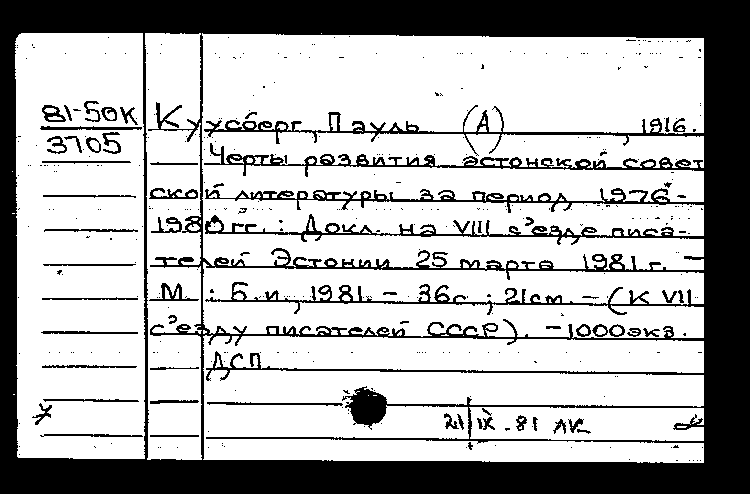 81-50К Куусберг, Пауль (А) , 1916.
3705
Черты развития эстонской совет
ской литературы за период 1976-
1980 гг. : Докл. на VIII с'езде писа-
телей Эстонии 25 марта 1981 г. -
М. : Б.и., 1981. - 36с. ; 21см. - (К VII
с'езду писателей СССР). - 1000экз.
ДСП.
21/IX - 81